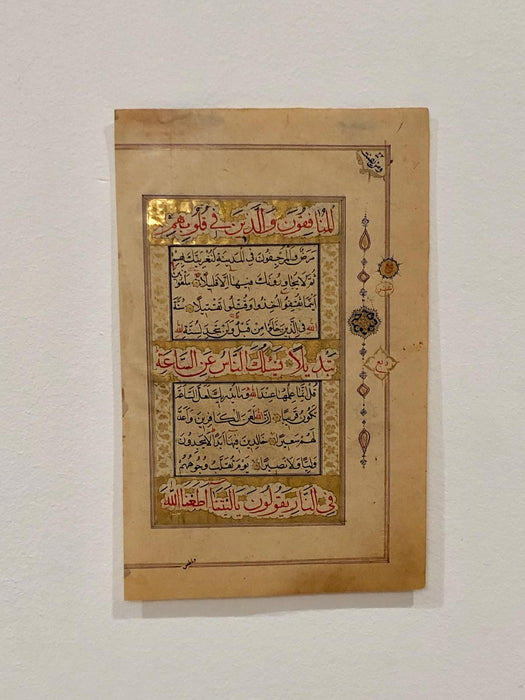 المُنافِقُونَ وَالَّذينَ في قُلُوبِهِمْ
مَرَضٌ وَالْمُرجِفُونَ فِي الْمَدينَةِ لَنُغْرِيَنَّكَ بِهِمْ
ثُمَّ لَا يُجَاوِرُونَكَ فيهَا اِلَّا قَليلًا مَلْعُونينَ
اَيْنَمَا ثُقِفُوا اُخِذُوا وَقُتِّلُوا تَقْتيلًا سُنَّةَ
اللهِ فِي الَّذينَ خَلَوْا مِنْ قَبْلُ وَلَنْ تَجِدَ لِسُنَّةِ اللهِ
تَبْديلًا يَسْئَلُكَ النَّاسُ عَنِ السَّاعَةِ
قُلْ اِنَّمَا عِلْمُهَا عِنْدَ اللهِ وَمَا يُدْريكَ لَعَلَّ السَّاعَةَ
تَكُونُ قَريبًا اِنَّ اللهَ لَعَنَ الْكَافِرينَ وَاَعَدَّ
لَهُمْ سَعيرًا خَالِدينَ فيهَا اَبَدًا لَا يَجِدُونَ
وَلِيًّا وَلَا نَصيرًا يَوْمَ تُقَلَّبُ وُجُوهُهُمْ
فِي النَّارِ يَقُولُونَ يَا لَيْتَنَا اَطَعْنَا اللهَ